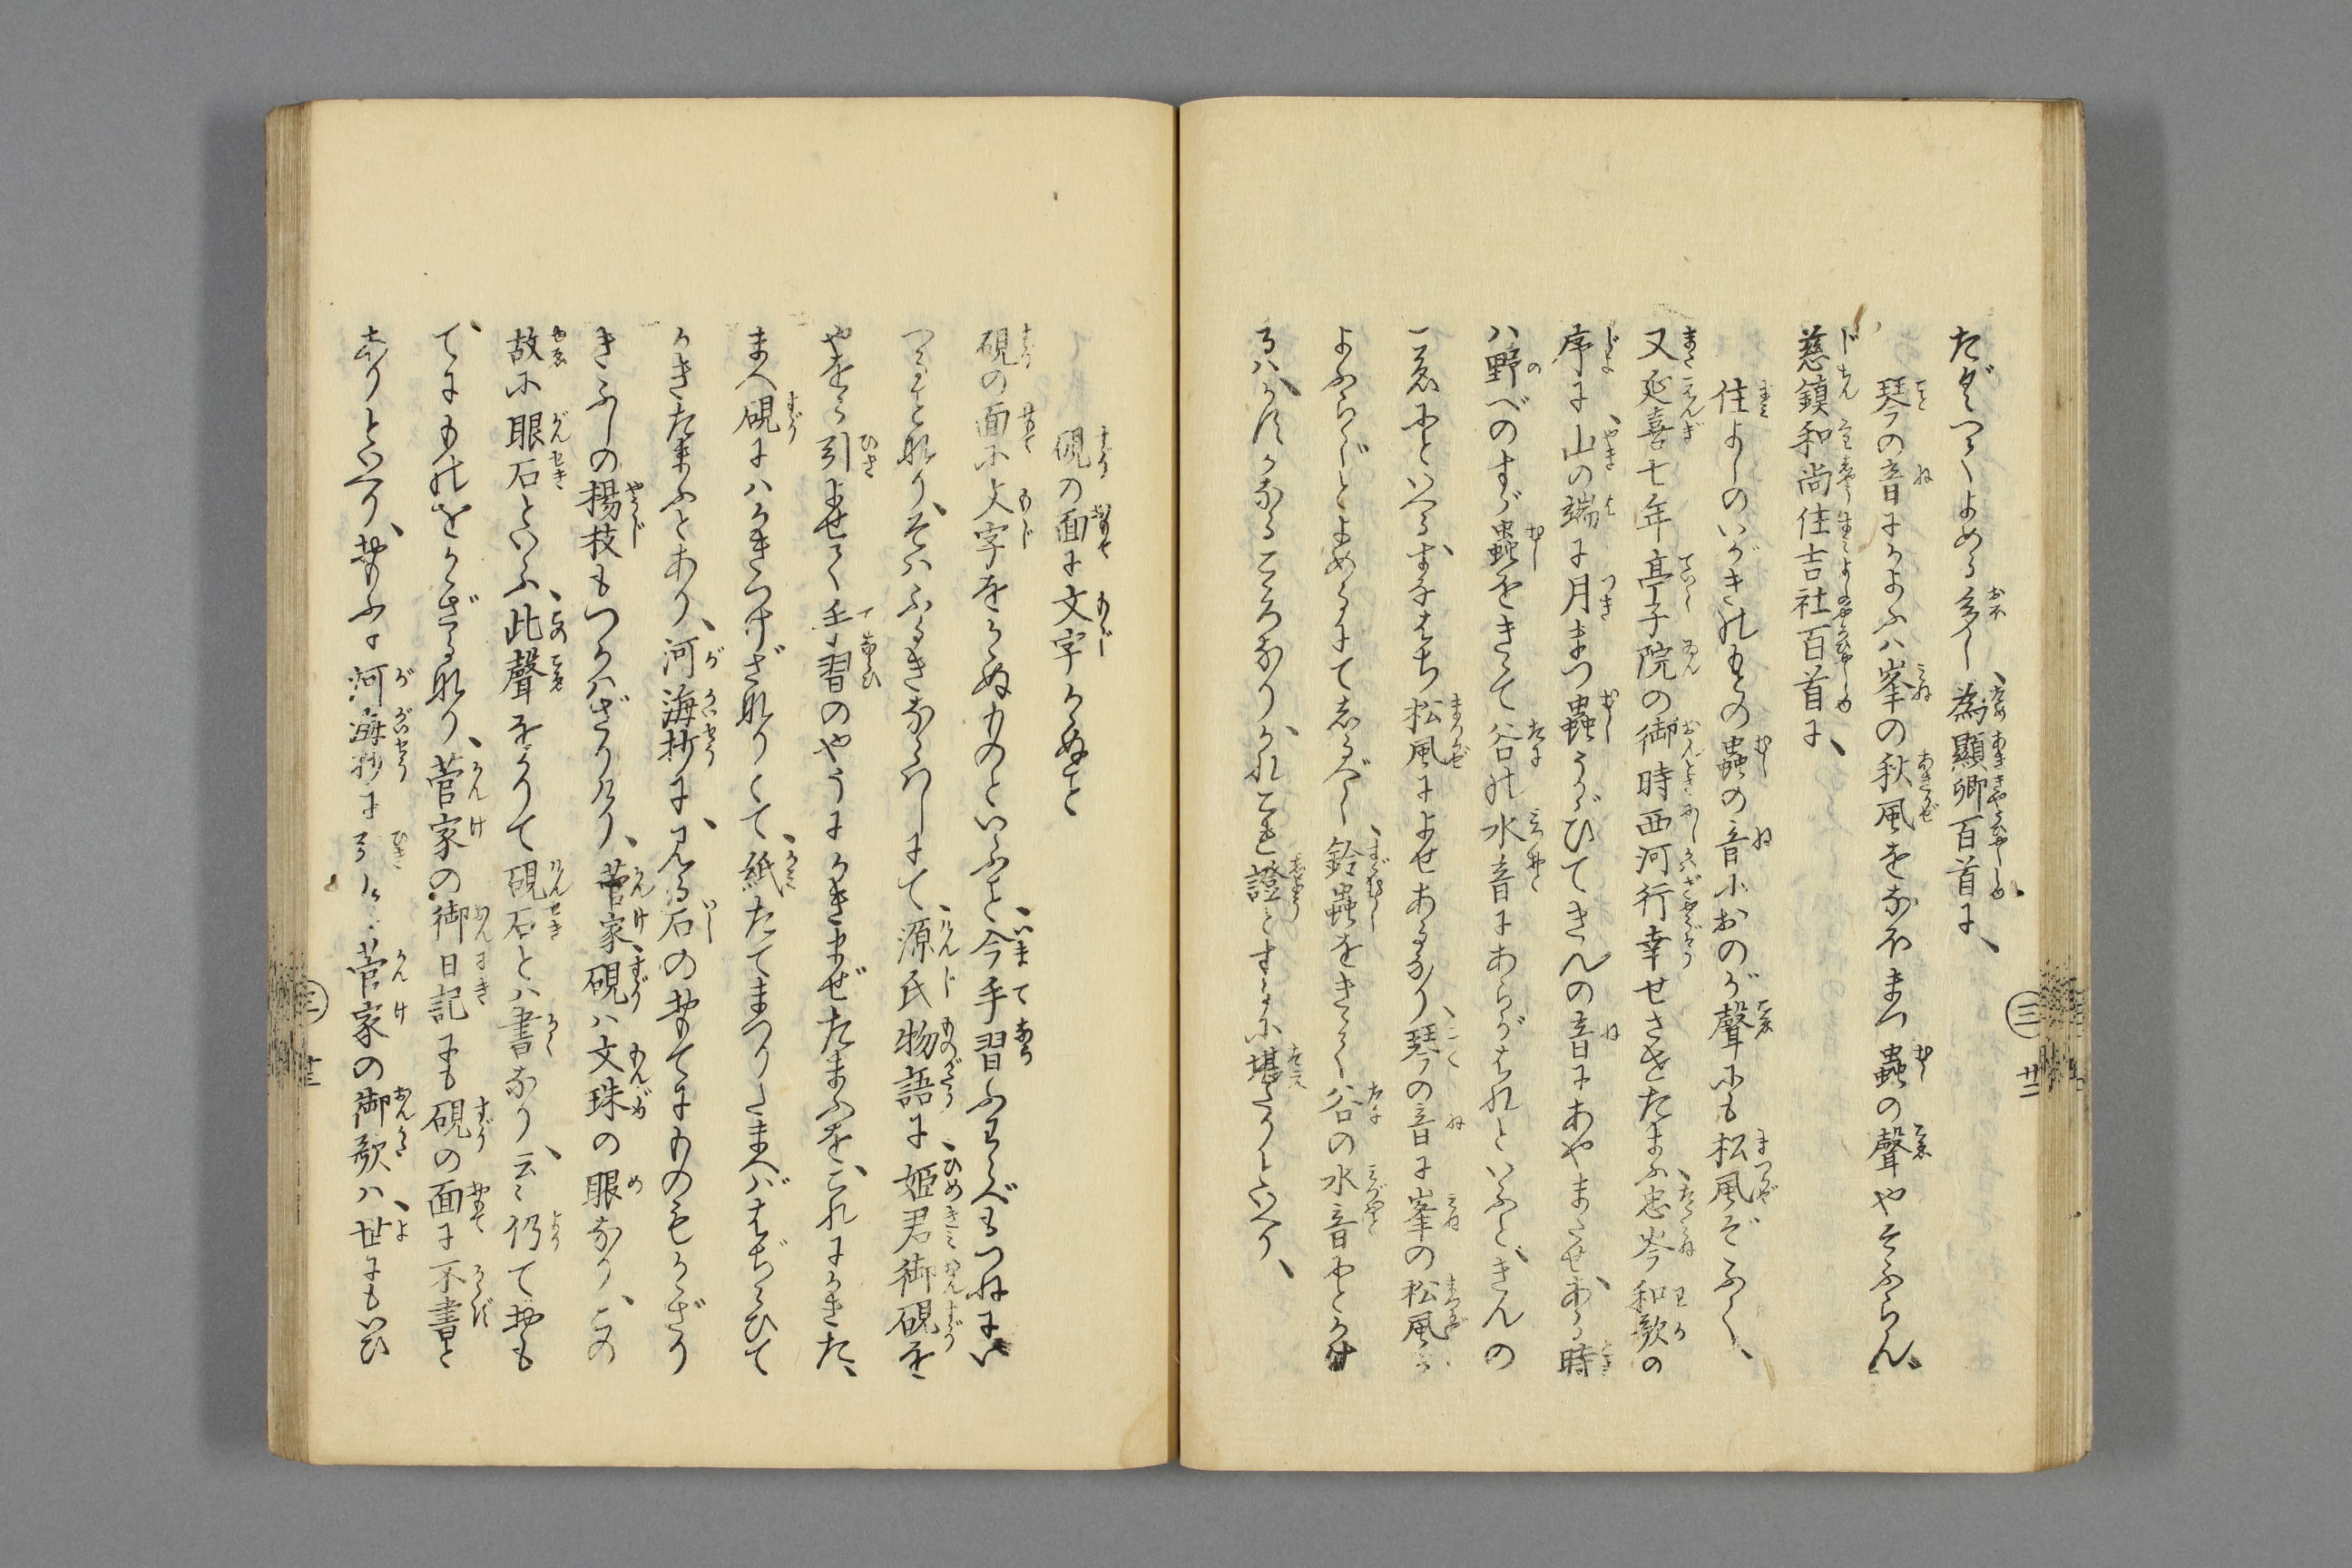 たぐへつゝよめる多し、為顯卿百首に、
琴の音にかよふハ峯の秋風をなほまつ蟲の聲やそふらん、
慈鎮和尚住吉社百首に、
住よしのいがきのもとの蟲の音におのが聲にも松風ぞふく、
又延喜七年亭子院の御時西河行幸せさせたまふ、忠岑和歌の
序に、山の端に月まつ蟲うかゞひてきんの音にあやまたせ、ある時
ハ野べのすゞ蟲をきゝて谷の水音にあらがはれといふど、きんの
こゑにといへるすなはち松風によせあるなり、琴の音に峯の松風か
よふらしとよめるにてしるべし、鈴蟲をきゝて谷の水音にとかけ
るハ
證とするに堪たりといへり、
硯の面に文字かゝぬこと
硯の面に文字をかゝぬものといふこと、今手習ふわらべもつねにい
つることなり、そハふるきならハしにて、源氏物語に、姫君御硯を
やをら引よせて手習のやうにかきまぜたまふを、これにかきた
まへ硯にハかきつけざなりとて、紙たてまつりたまへばはぢらひて
かきたまふとあり、河海抄に、見る石のおもてにものもかゝざり
きふしの楊枝もつかハざりけり、菅家、硯ハ文珠の眼なり、この
故に眼石といふ、此聲をかりて硯石とハ書なり、云々仍ておも
てにものをかゝざるなり、菅家の御日記にも硯の面に不書と
ありといへり、おもふに河海抄に引る菅家の御歌ハ、世にもいひ
三
廿二
三
廿三